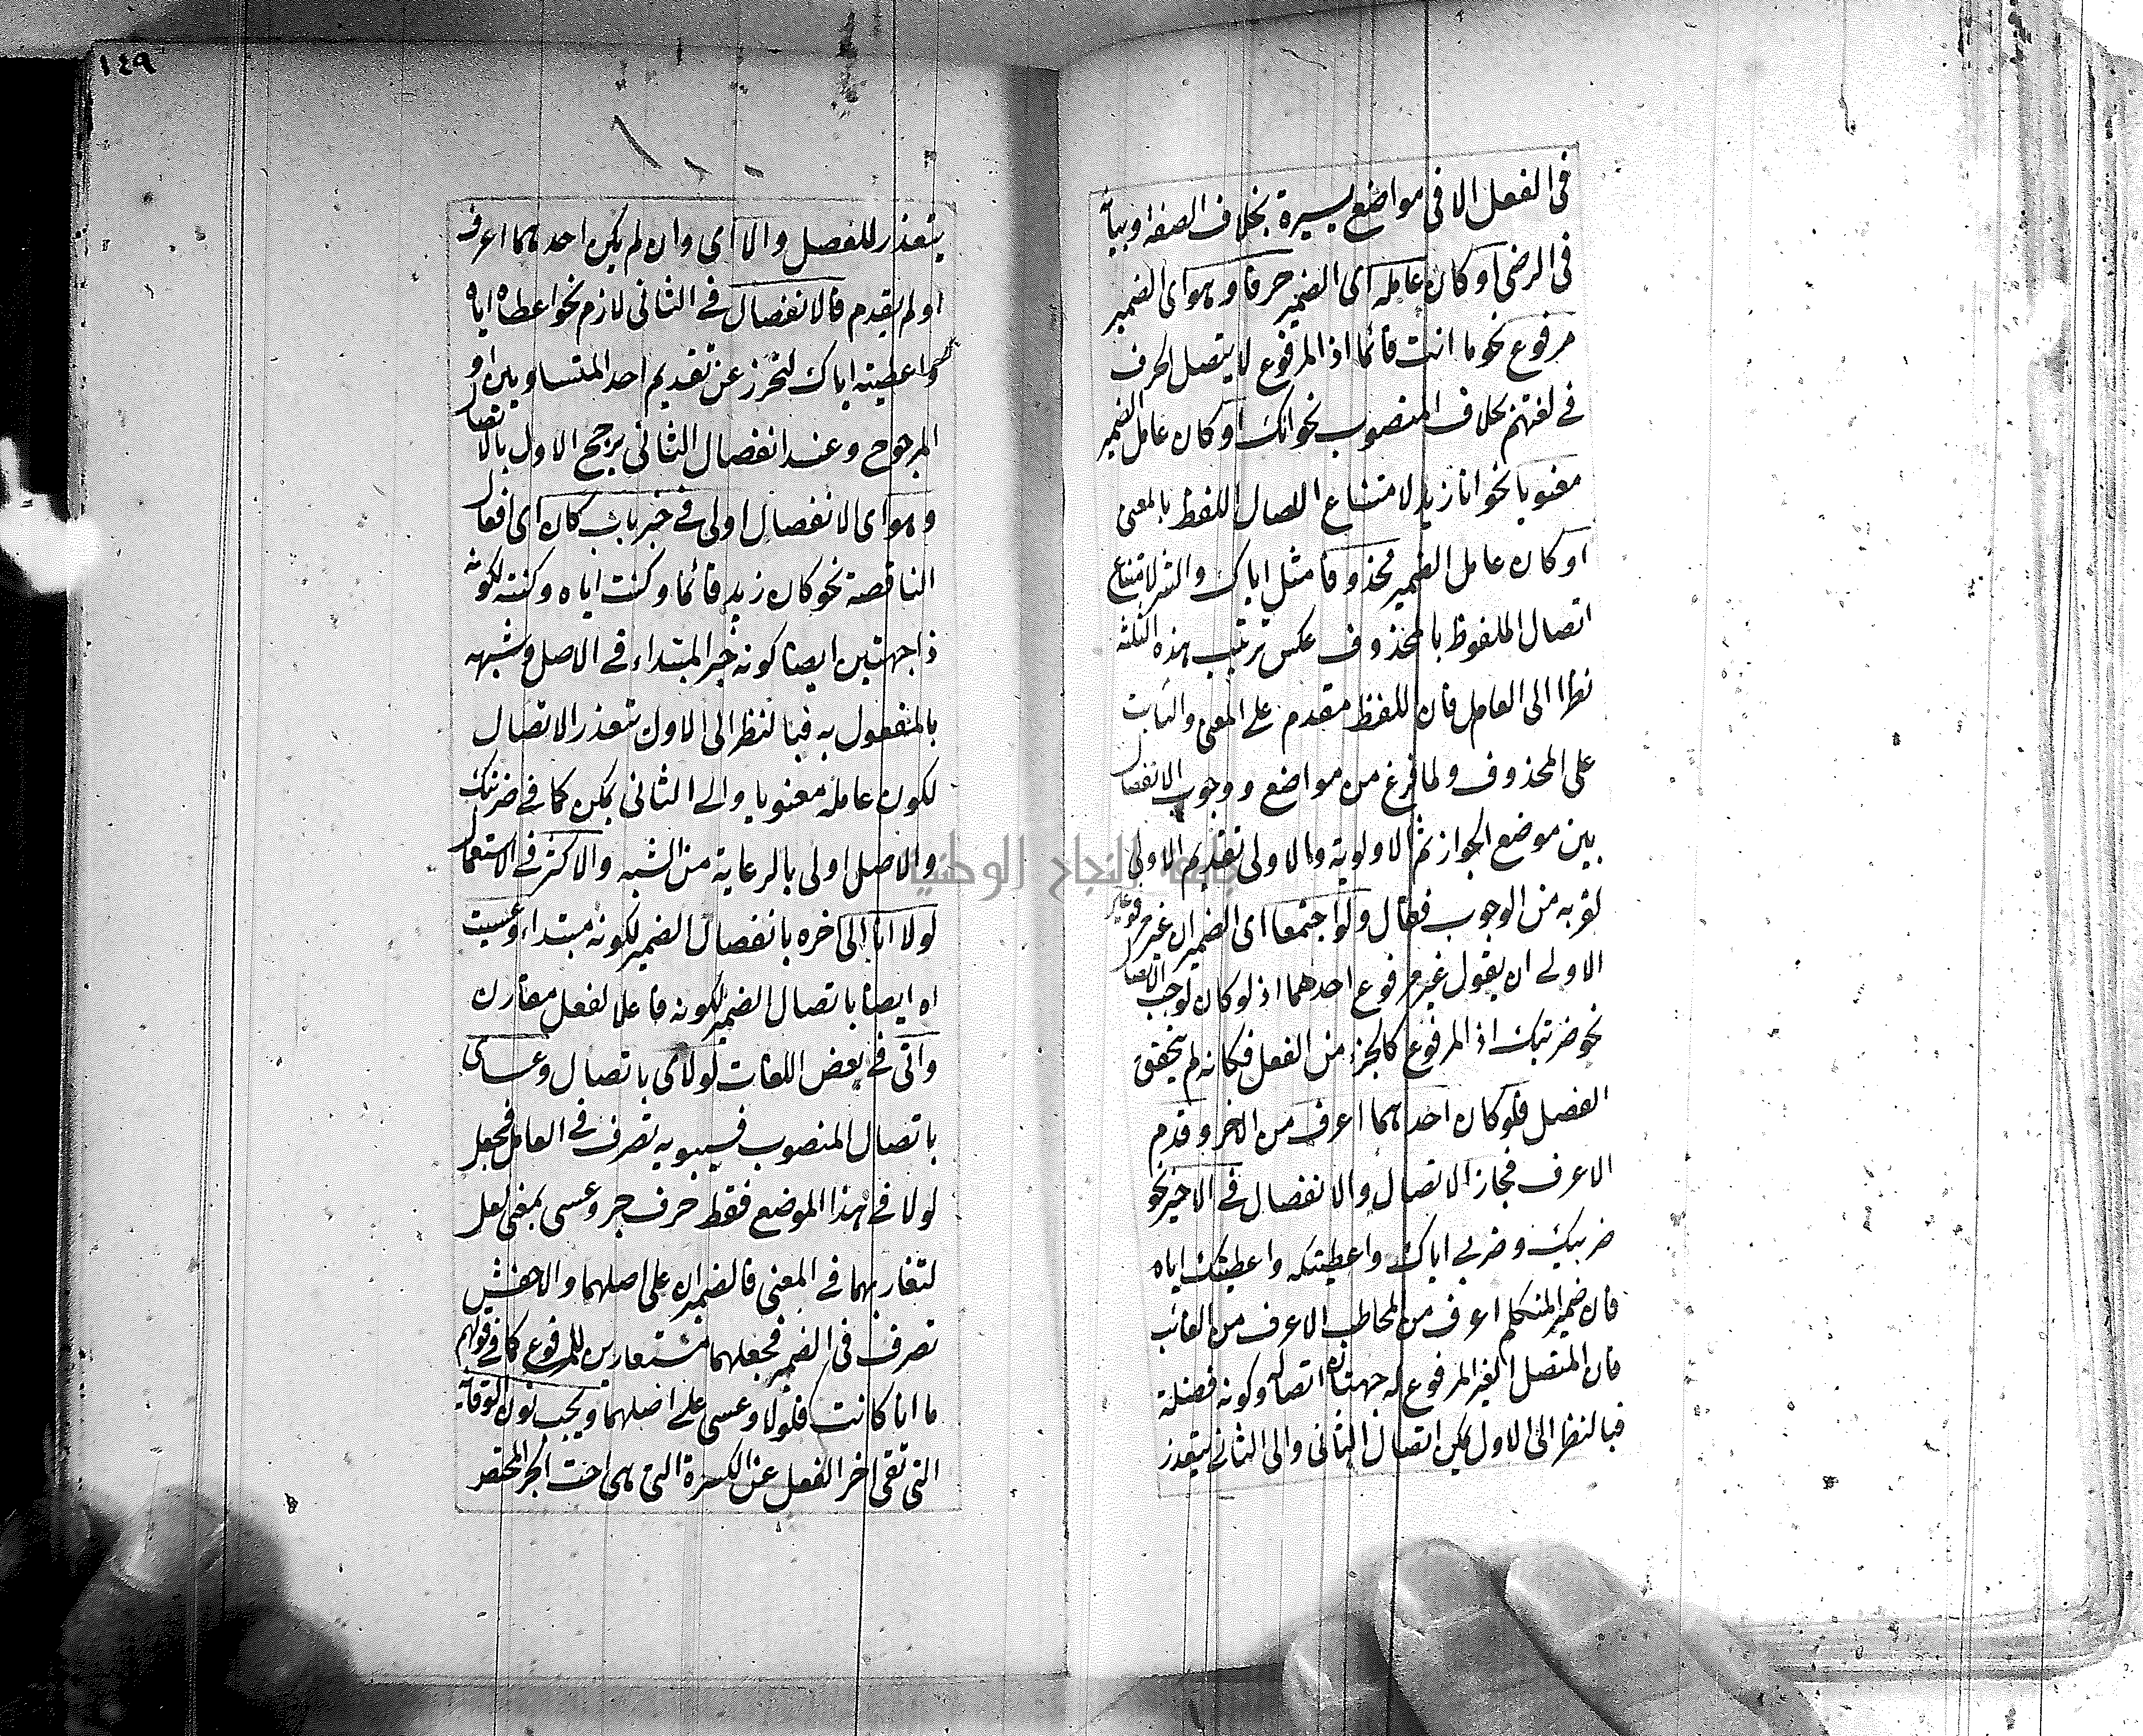 فى الفعل الا فى مواضع يسيرة بخلاف الصفة وبيانه
فى الرضى او كان عامله اى الضمير حرفا وهو اى الضمير
مرفوع نحو ما انت قائما اذ المرفوع لا يتصل بحرف
فى لغتهم بخلاف المنصوب نحو انك او كان عامل الضمير
معنويا نحو انا زيد لامتناع اتصال اللفظ بالمعنى
او كان عامل الضمير محذوفا مثل اياك والشر لامتناع
اتصال الملفوظ بالمحذوف عكس ترتيب هذه الثلثة
نظرا الى العامل فان اللفظ مقدم على المعنى والثابت
على المحذوف ولما فرغ من مواضع ووجوب الانفصال
بين موضع الجواز ثم الاولوية والاولى تقديم الاولى
لقربه من الوجوب فقال ولو اجتمعا اى الضميران غير مرفوعين
الاولى ان يقول غير مرفوع احدهما اذ لو كان لوجب الاتصال
نحو ضربتك اذ المرفوع كالجزء من الفعل فكانه لم يتحقق
الفصل فلو كان احدهما اعرف من الاخر وقدم
الاعرف فجاز الاتصال والانفصال فى الاخير نحو
ضربيك وضربى اياك واعطيتكه واعطيتك اياه
فان ضمير المتكلم اعرف من المخاطب الاعرف من الغائب
فان المتصل الغير المرفوع له جهتان اتصاله وكونه فضلة
فبالنظر الى الاول يمكن اتصال الثانى والى الثانى يتعذر
١٤٩
يتعذر للفصل والا اى وان لم يكن احدهما اعرف
او لم يقدم فالانفصال فى الثانى لازم نحو اعطاه اياه
واعطيته اياك لتحرز عن تقديم احد المتساويين او
المرجوح وعند انفصال الثانى يرجح الاول بالاتصال
وهو اى الانفصال اولى فى خبر باب كان اى افعال
الناقصة نحو كان زيد قائما وكنت اياه وكنته لكونه
ذا جهتين ايضا كونه خبر المبتداء فى الاصل وشبهه
بالمفعول به فبالنظر الى الاول تتعذر الاتصال
لكون عامله معنويا والى الثانى يمكن كما فى ضربتك
والاصل اولى بالرعاية من الشبه والاكثر فى الاستعمال
لولا انا الى اخره بانفصال الضمير لكونه مبتداء وعسيت
اه ايضا باتصال الضمير لكونه فاعلا لفعل مقارن
واتى فى بعض اللغات لولاى باتصال وعساى
باتصال المنصوب فسيبويه تصرف فى العامل فجعل
لولا فى هذا الموضع فقط حرف جر وعسى بمعنى لعل
لتقاربهما فى المعنى فالضميران على اصلهما والاخفش
تصرف فى الضمير فجعلهما مستعارين للمرفوع كما فى قولهم
ما انا كانت فلولا وعسى على اصلهما ويجب نون الوقاية
التى تقى اخر الفعل عن الكسرة التى هى اخت الجر المختصر